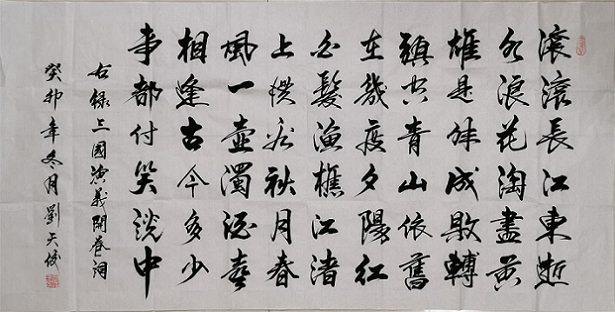 滚滚長江東逝
水浪花淘盡英
雄是非成敗轉
頭空青山依舊
在幾度夕陽紅
白髮漁樵江渚
上慣看秋月春
風一壺濁酒喜
相逢古今多少
事都付笑談中
右録三國演義開卷詞
癸卯年冬月劉天